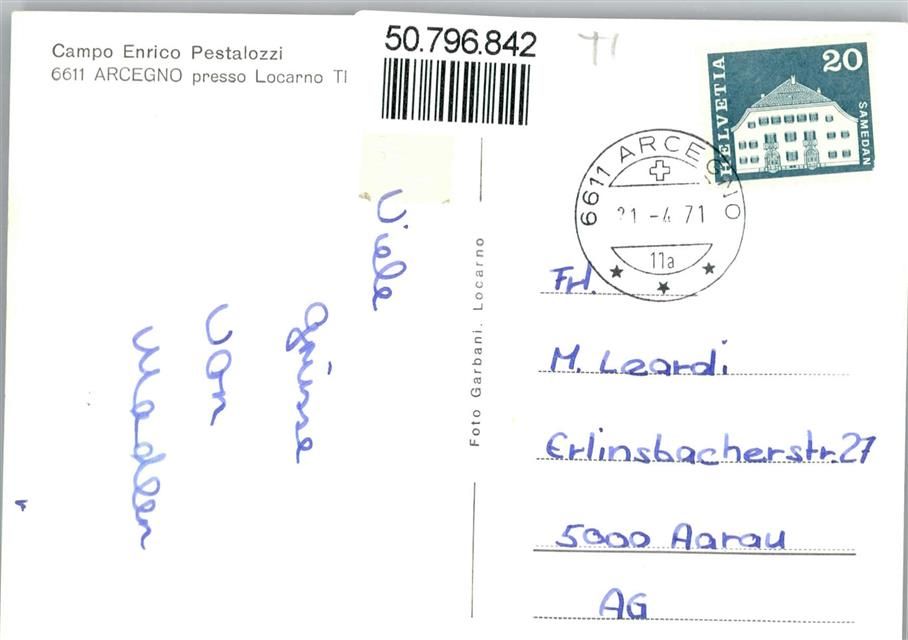 Campo Enrico Pestalozzi
6611 ARCEGNO presso Locarno TI
50.796.842
TI
HELVETIA
20
SAMEDAN
6611 ARCEGNO
21 -4 71
11a
Viele
Grüsse
von
Madlen
Foto Garbani. Locarno
Frl.
M. Leardi
Erlinsbacherstr.27
5000 Aarau
AG